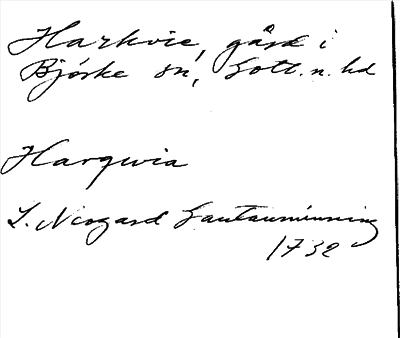 Harkvie, gård i
Bjørke sn, Gotl. n. hd
Harqvia
L. Neogard Gautauminning
1732